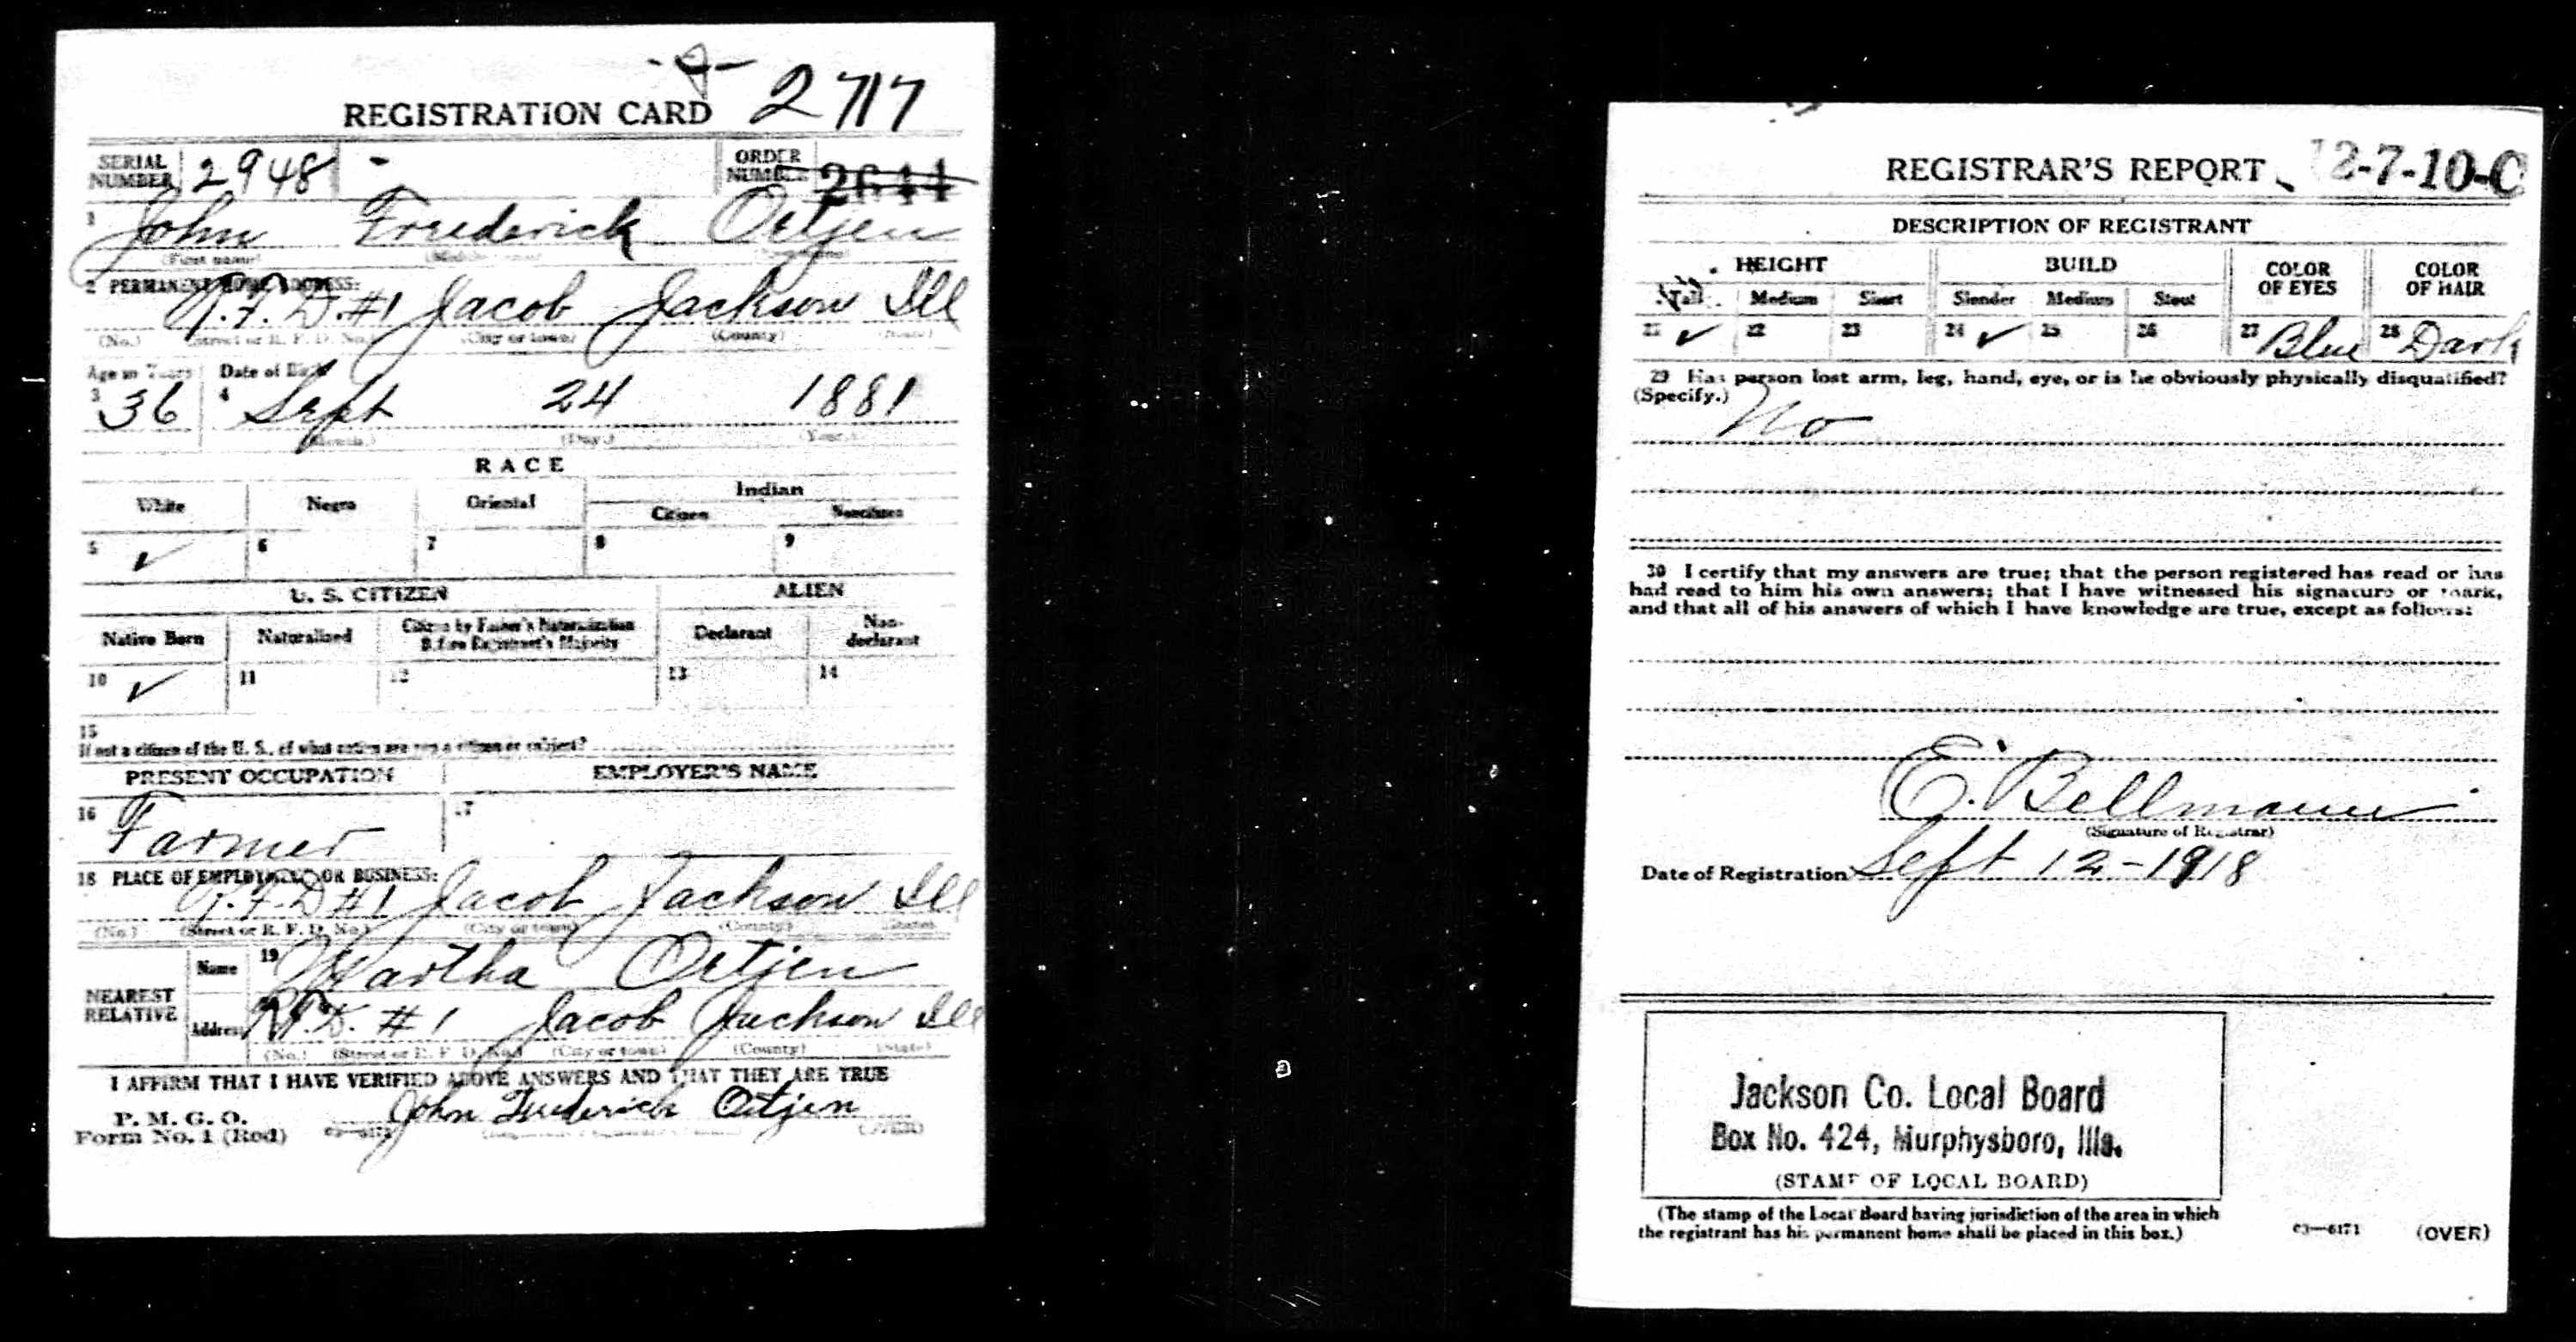 REGISTRATION CARD 2717
SERIAL NUMBER 2948 - ORDER NUMBER 2644
1 John Frederick Oetjen
(First name) (Middle name)
2 PERMANENT HOME ADDRESS:
R.F.D. #1 Jacob Jackson Ill
(No.) (Street or R. F. D. No.) (City or town) (County) (State)
Age in Years Date of Birth
3 36 4 Sept 24 1881
(Month.) (Day.) (Year.)
RACE
White Negro Oriental Indian
Citizen Noncitizen
5 ✓ 6 7 8 9
U. S. CITIZEN ALIEN
Native Born Naturalized Citizen by Father's Naturalization Before Registrant's Majority Declarant Non-declarant
10 ✓ 11 12 13 14
15
If not a citizen of the U. S., of what nation are you a citizen or subject?
PRESENT OCCUPATION EMPLOYER'S NAME
16 Farmer 17
18 PLACE OF EMPLOYMENT OR BUSINESS:
R.F.D #1 Jacob Jackson Ill
(No.) (Street or R. F. D. No.) (City or town) (County) (State)
NEAREST RELATIVE
Name 19 Martha Oetjen
Address R.F.D. #1 Jacob Jackson Ill
(No.) (Street or R. F. D. No.) (City or town) (County) (State)
I AFFIRM THAT I HAVE VERIFIED ABOVE ANSWERS AND THAT THEY ARE TRUE
P. M. G. O.
Form No. 1 (Red) 03—6171 John Frederick Oetjen (OVER)
REGISTRAR'S REPORT 12-7-10-C
DESCRIPTION OF REGISTRANT
HEIGHT BUILD COLOR OF EYES COLOR OF HAIR
Tall Medium Short Slender Medium Stout
21 ✓ 22 23 24 ✓ 25 26 27 Blue 28 Dark
29 Has person lost arm, leg, hand, eye, or is he obviously physically disqualified?
(Specify.) No
30 I certify that my answers are true; that the person registered has read or has
had read to him his own answers; that I have witnessed his signature or mark,
and that all of his answers of which I have knowledge are true, except as follows:
E. Bellmann
(Signature of Registrar)
Date of Registration Sept 12-1918
Jackson Co. Local Board
Box No. 424, Murphysboro, Ills.
(STAMP OF LOCAL BOARD)
(The stamp of the Local Board having jurisdiction of the area in which
the registrant has his permanent home shall be placed in this box.)
03—6171 (OVER)